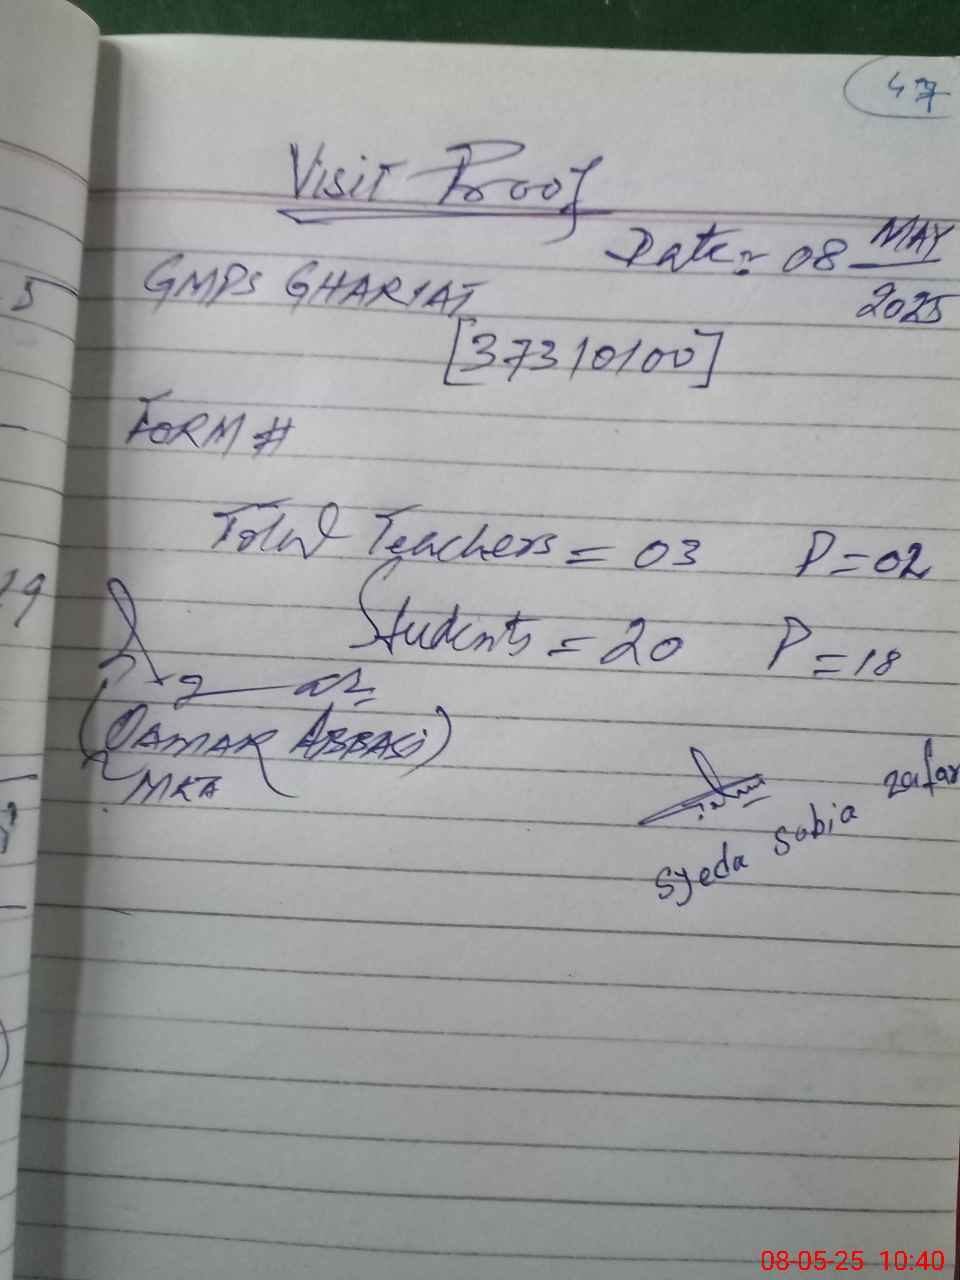 47
Visit Proof
Date:- 08 MAY
2025
GMPS GHARIAT
[37310100]
FORM #
Total Teachers = 03 P=02
Students = 20 P=18
(QAMAR ABBASI)
MEA
Syeda Sobia zafar
5
19
08-05-25 10:40